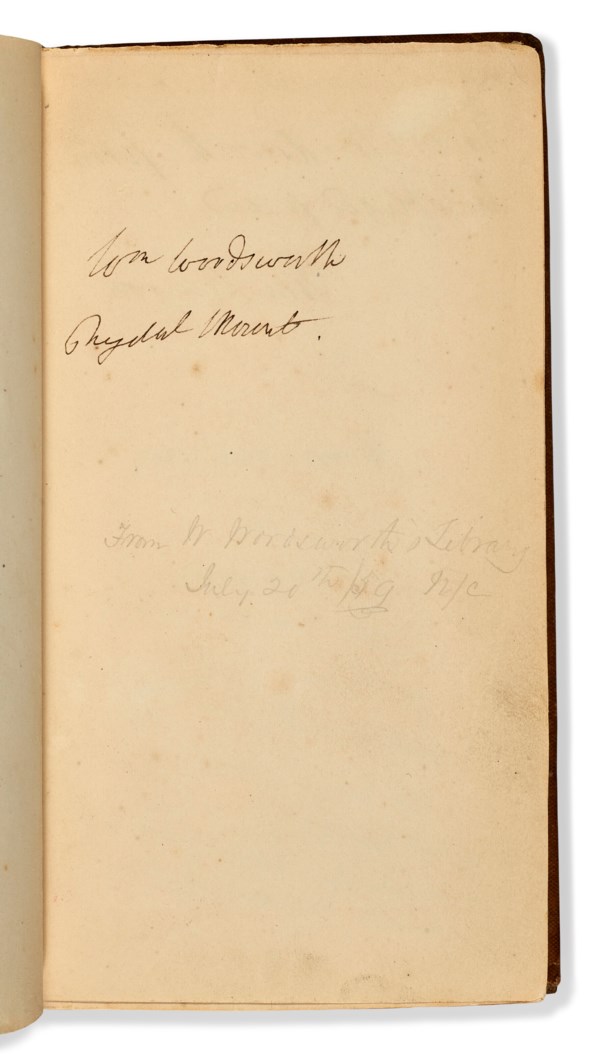 Wm Wordsworth
Rydal Mount.
From W Wordsworth's Library
July 20th /59